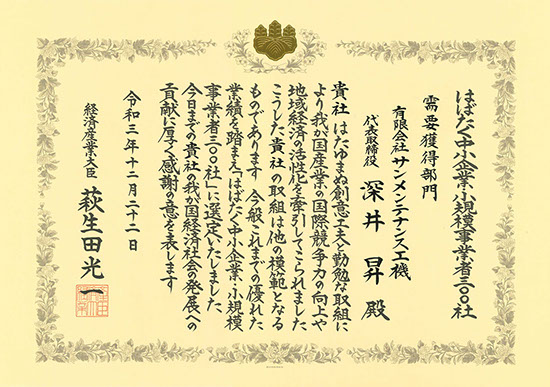 はばたく中小企業・小規模事業者三〇〇社
需要獲得部門
有限会社サンメンテナンス工機
代表取締役 深井昇殿
貴社はたゆまぬ創意工夫と勤勉な取組に
より我が国産業の国際競争力の向上や
地域経済の活性化を牽引してこられました
こうした貴社の取組は他の模範となる
ものであります 今般これまでの優れた
業績を踏まえ「はばたく中小企業・小規模
事業者三〇〇社」に選定いたしました
今日までの貴社の我が国経済社会の発展への
貢献に厚く感謝の意を表します
令和三年十二月二十二日
経済産業大臣 萩生田光一